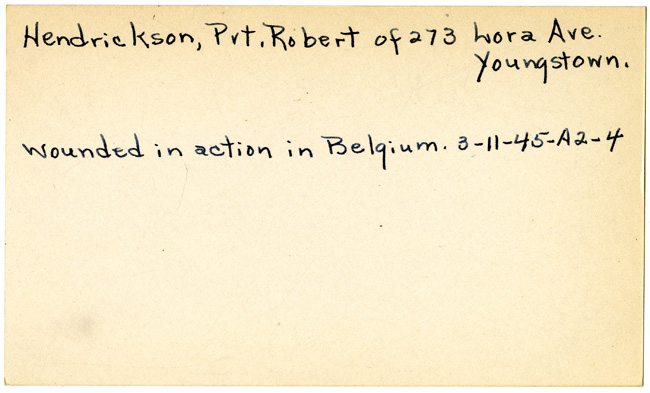 Hendrickson, Pvt. Robert of 273 Lora Ave.
Youngstown.
wounded in action in Belgium. 3-11-45-A2-4